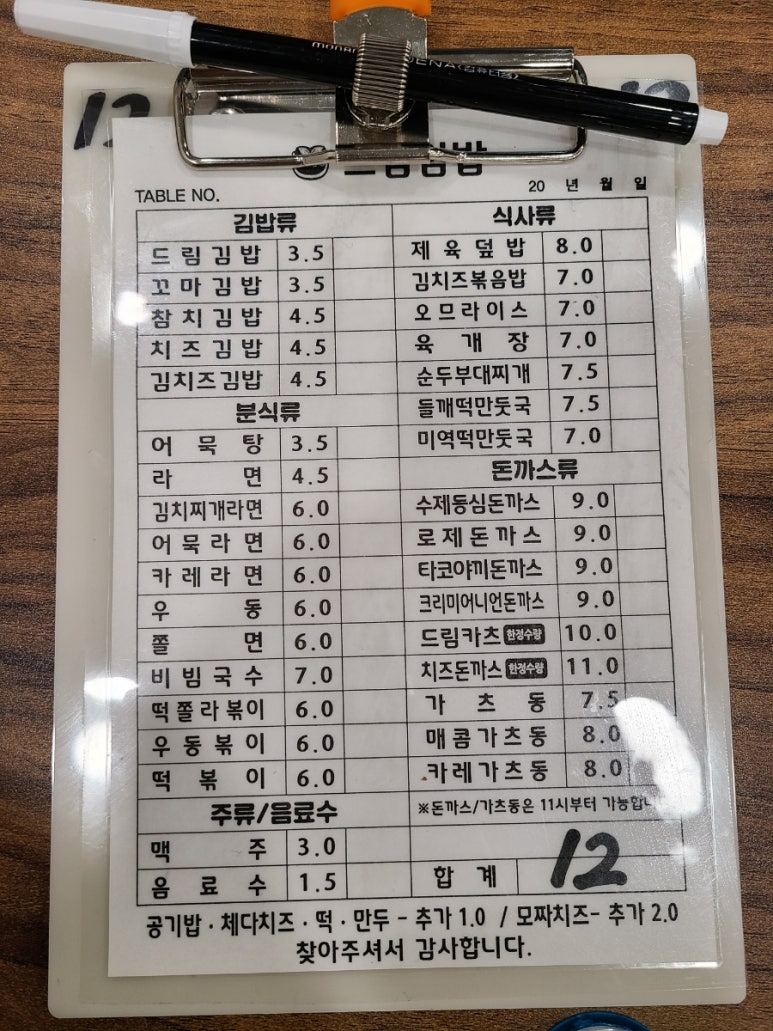 12
TABLE NO.
20 년 월 일
김밥류
드림김밥 3.5
꼬마김밥 3.5
참치김밥 4.5
치즈김밥 4.5
김치즈김밥 4.5
분식류
어묵탕 3.5
라면 4.5
김치찌개라면 6.0
어묵라면 6.0
카레라면 6.0
우동 6.0
쫄면 6.0
비빔국수 7.0
떡쫄라볶이 6.0
우동볶이 6.0
떡볶이 6.0
주류/음료수
맥주 3.0
음료수 1.5
식사류
제육덮밥 8.0
김치즈볶음밥 7.0
오므라이스 7.0
육개장 7.0
순두부대찌개 7.5
들깨떡만둣국 7.5
미역떡만둣국 7.0
돈까스류
수제등심돈까스 9.0
로제돈까스 9.0
타코야끼돈까스 9.0
크리미어니언돈까스 9.0
드림카츠 한정수량 10.0
치즈돈까스 한정수량 11.0
가츠동 7.5
매콤가츠동 8.0
카레가츠동 8.0
※돈까스/가츠동은 11시부터
합계
12
공기밥·체다치즈·떡·만두 - 추가 1.0 / 모짜치즈- 추가 2.0
찾아주셔서 감사합니다.